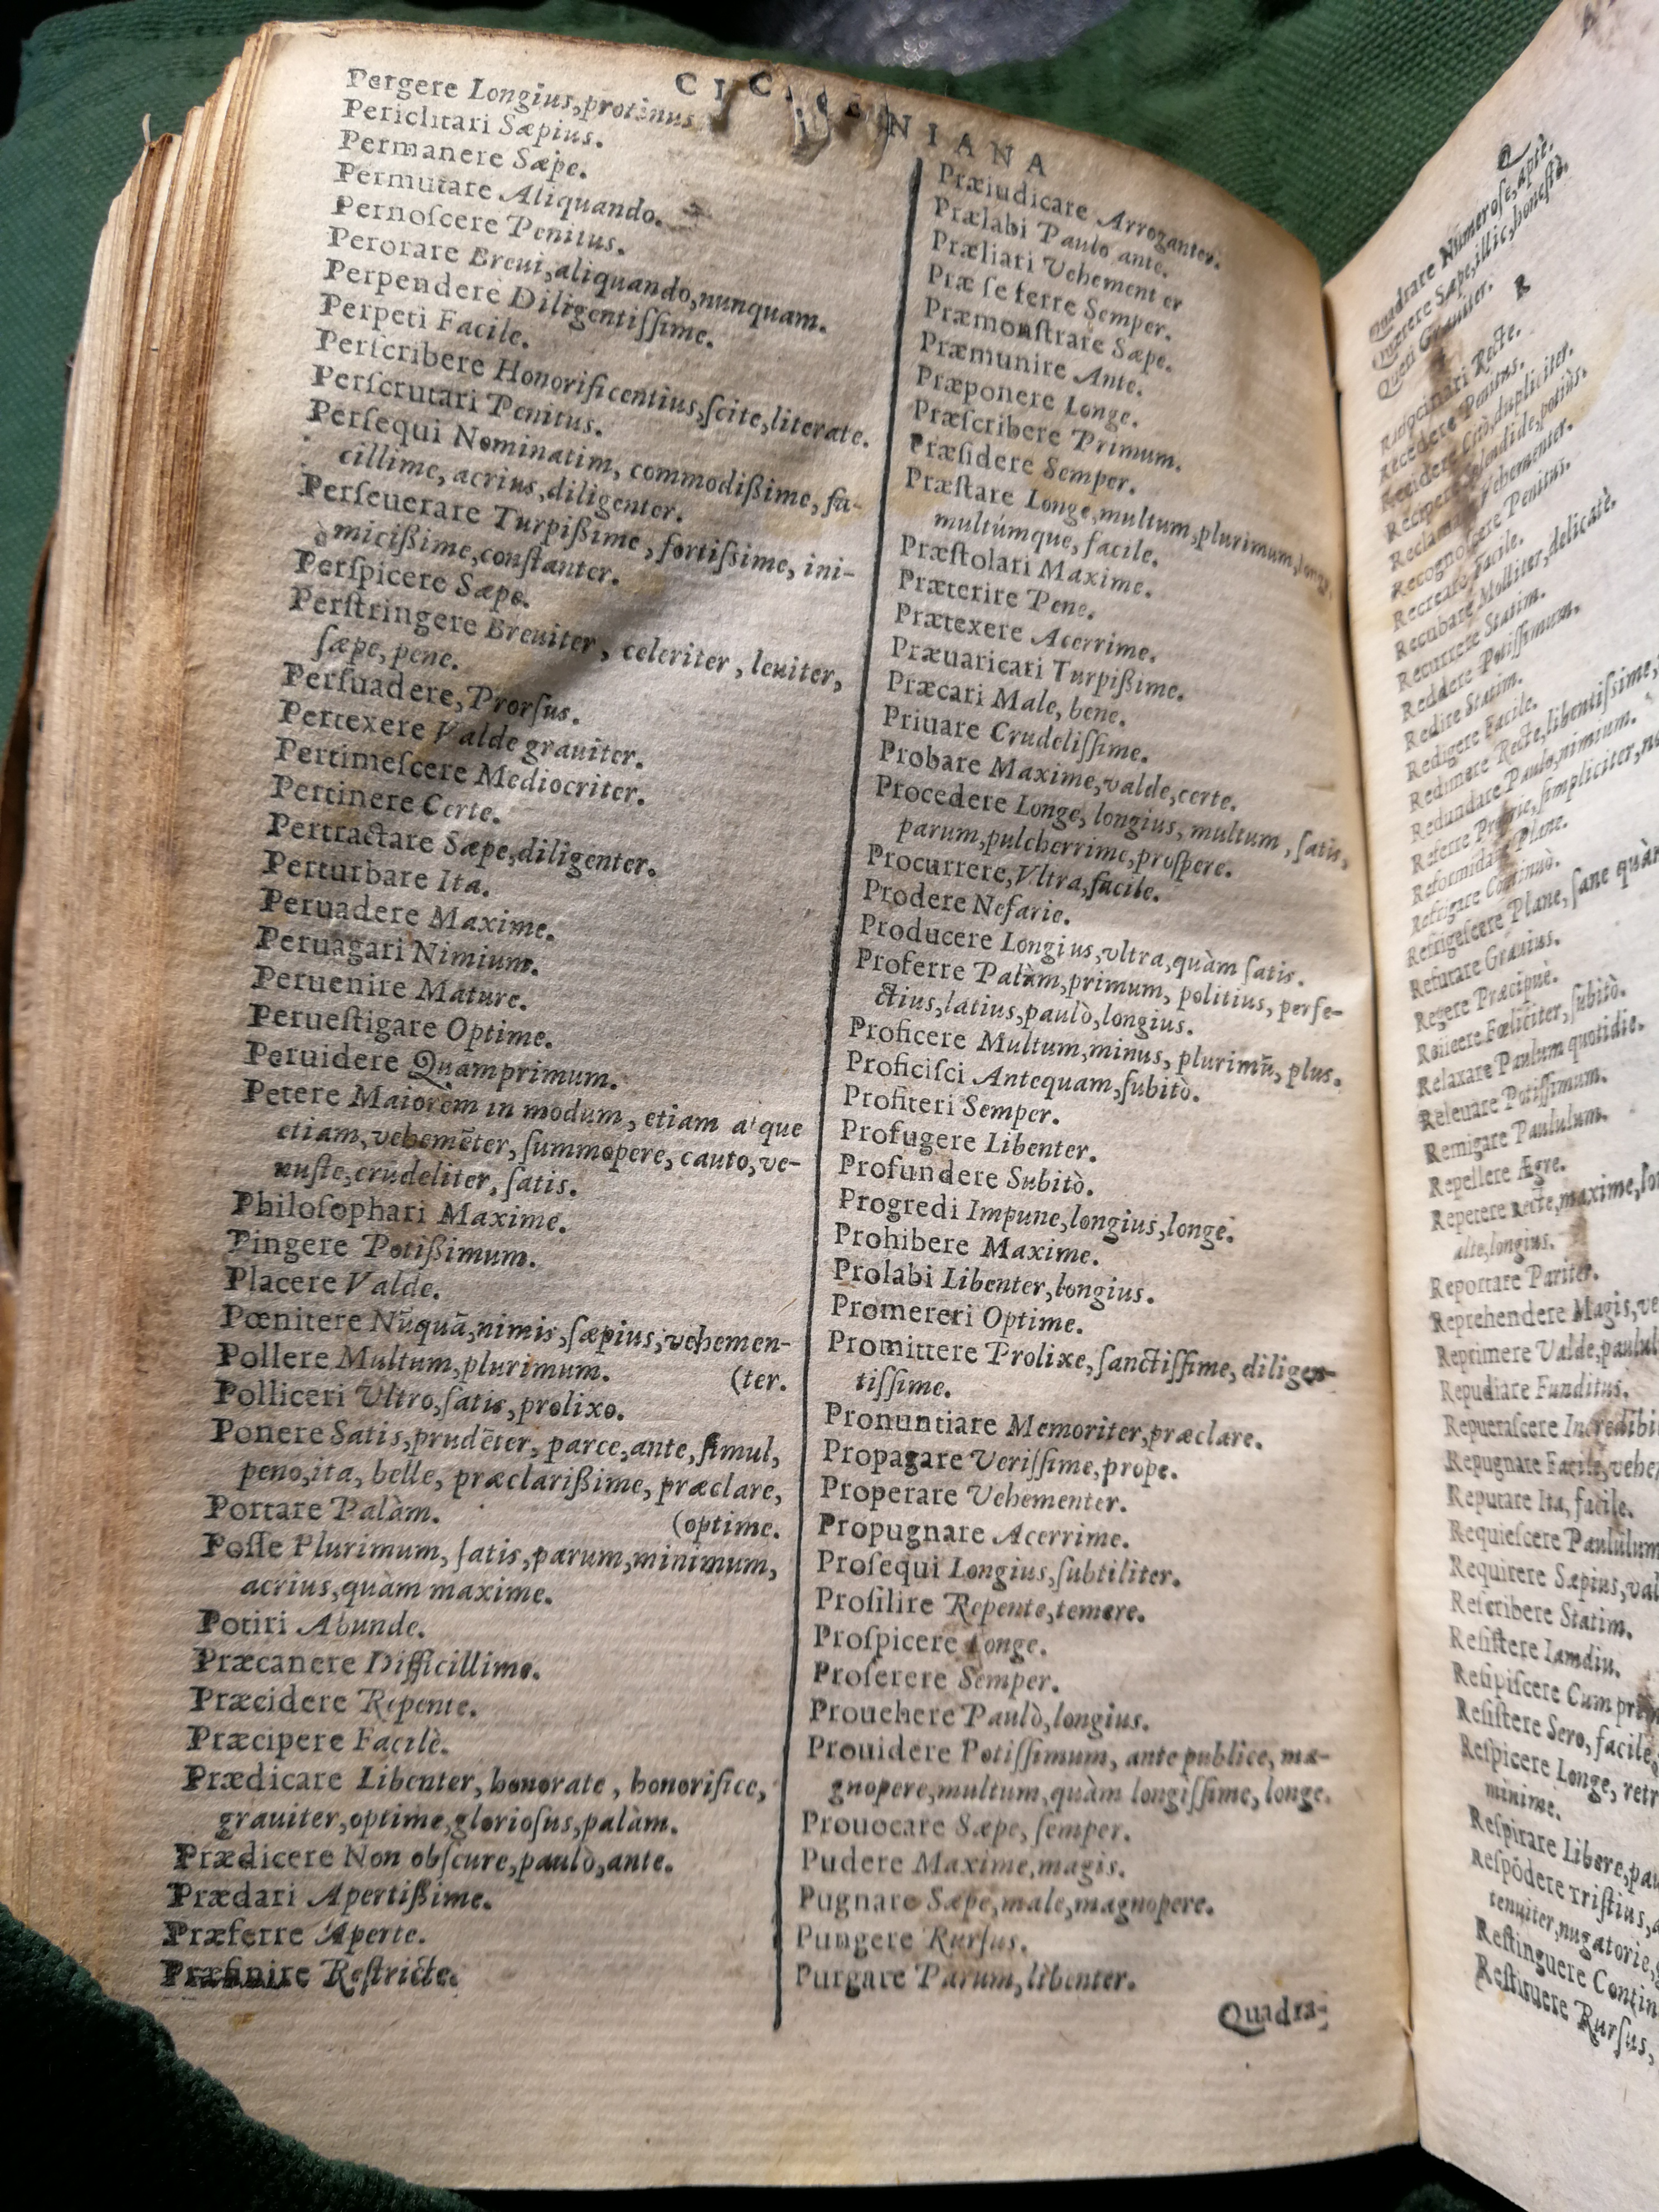 CIC NIANA
Pergere Longius,protinus.
Periclitari Sæpius.
Permanere Sæpe.
Permutare Aliquando.
Pernoſcere Penitus.
Perorare Breui,aliquando,nunquam.
Perpendere Diligentiſſime.
Perpeti Facile.
Perſcribere Honorificentius,ſcite,literate.
Perſcrutari Penitus.
Perſequi Nominatim, commodißime, fa-
cillime, acrius,diligenter.
Perſeuerare Turpißime, fortiſsime, ini-
micißime,conſtanter.
Perſpicere Sæpe.
Perſtringere Breuiter, celeriter, leuiter,
ſæpe,pene.
Perſuadere,Prorſus.
Pertexere Valde grauiter.
Pertimeſcere Mediocriter.
Pertinere Certe.
Pertractare Sæpe,diligenter.
Perturbare Ita.
Peruadere Maxime.
Peruagari Nimium.
Peruenire Mature.
Perueſtigare Optime.
Peruidere Quamprimum.
Petere Maiorem in modum, etiam atque
etiam,vehemēter, ſummopere, caute,ve-
nuſte,crudeliter, ſatis.
Philoſophari Maxime.
Pingere Potißimum.
Placere Valde.
Pœnitere Nūquā,nimis,ſæpius,vehemen-
Pollere Multum,plurimum. (ter.
Polliceri Vltro,ſatis,prolixe.
Ponere Satis,prudēter, parce,ante,ſimul,
pene,ita, belle, præclarißime, præclare,
Portare Palàm. (optime.
Poſſe Plurimum, ſatis,parum,minimum,
acrius,quàm maxime.
Potiri Abunde.
Præcanere Difficillime.
Præcidere Repente.
Præcipere Facilè.
Prædicare Libenter, honorate, honorifice,
grauiter,optime,glorioſus,palàm.
Prædicere Non obſcure,paulò,ante.
Prædari Apertißime.
Præferre Aperte.
Præfinire Reſtricte.
Præiudicare Arroganter.
Prælabi Paulo ante.
Præliati Vehement er
Præ ſe ferre Semper.
Præmonſtrare Sæpe.
Præmunire Ante.
Præponere Longe.
Præſcribere Primum.
Præſidere Semper.
Præſtare Longe,multum,plurimum,longe,
multúmque, facile.
Præſtolari Maxime.
Præterire Pene.
Prætexere Acerrime.
Præuaricari Turpißime.
Præcari Male, bene.
Priuare Crudeliſſime.
Probare Maxime,valde,certe.
Procedere Longe, longius, multum, ſatis,
parum,pulcherrime,proſpere.
Procurrere,Vltra,facile.
Prodere Nefarie.
Producere Longius,vltra,quàm ſatis.
Proferre Palàm,primum, politius, perfe-
ctius,latius,paulò,longius.
Proficere Multum,minus, plurimū, plus.
Proficiſci Antequam,ſubitò.
Profiteri Semper.
Profugere Libenter.
Profundere Subitò.
Progredi Impune,longius,longe.
Prohibere Maxime.
Prolabi Libenter,longius.
Promereri Optime.
Promittere Prolixe,ſanctiſſime, diligen-
tiſſime.
Pronuntiare Memoriter,præclare.
Propagare Veriſſime,prope.
Properare Vehementer.
Propugnare Acerrime.
Proſequi Longius,ſubtiliter.
Proſilire Repente,temere.
Proſpicere Longe.
Proſerere Semper.
Prouehere Paulò,longius.
Prouidere Potiſſimum, ante publice, ma-
gnopere,multum,quàm longiſſime, longe.
Prouocare Sæpe, ſemper.
Pudere Maxime,magis.
Pugnare Sæpe,male,magnopere.
Pungere Rurſus.
Purgare Parum,libenter.
Quadra-
Q
Quadrare Numeroſe,aptè.
Quærere Sæpe,illic,honeſtè.
Queri Grauiter.
R
Ratiocinari Recte.
Recedere Penitus.
Recidere Citò,dupliciter.
Recipere Splendide,potiùs.
Reclamare Vehementer.
Recognoſcere Penitus.
Recreare Facile.
Recubare Molliter,delicatè.
Recurrere Statim.
Reddere Potiſſimum.
Redire Statim.
Redigere Facile.
Redimere Recte,libentiſsime,
Redundare Paulo,nimium.
Referre Proprie,ſimpliciter,
Reformidare Plane.
Refrigare Continuò.
Refrigeſcere Plane, ſane quàm
Refutare Grauius.
Regere Præcipuè.
Reiicere Fœliciter, ſubitò.
Relaxare Paulum quotidie.
Releuare Potiſſimum.
Remigare Paululum.
Repellere Ægre.
Repetere Recte,maxime,
alte,longius.
Reportare Pariter.
Reprehendere Magis,
Reprimere Valde,
Repudiare Funditus.
Repueraſcere
Repugnare Facile,
Reputare Ita, facile.
Requieſcere Paululum
Requirere Sæpius,
Reſcribere Statim.
Reſiſtere Iamdiu.
Reſipiſcere Cum
Reſiſtere Sero, facile,
Reſpicere Longe,
minime.
Reſpirare Libere,
Reſpōdere Triſtius,
tenuiter,nugatorie,
Reſtinguere
Reſtituere Rurſus,